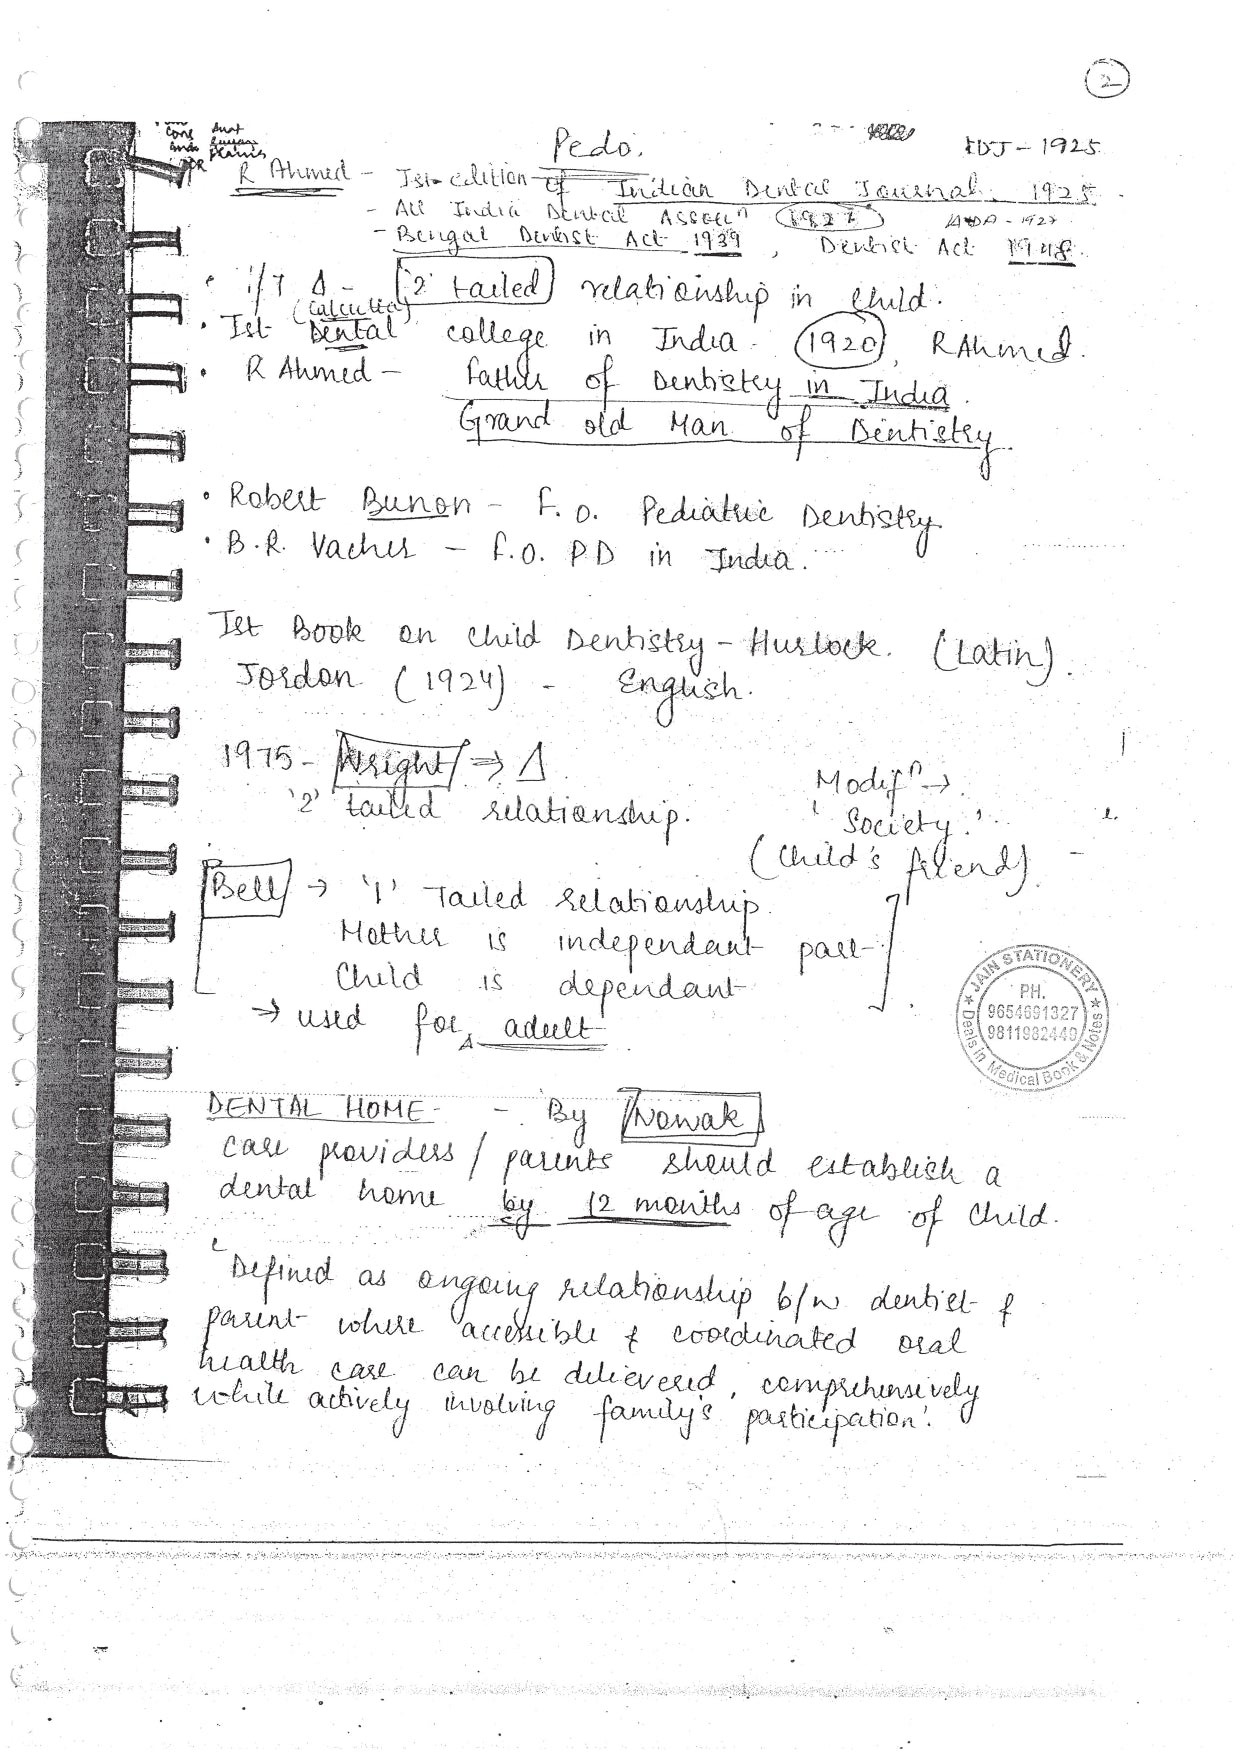 2
Pedo.
IDJ - 1925
R Ahmed - Ist edition of Indian Dental Journal. 1925
- All India Dental Assocn 1927 AIDA - 1927
- Bengal Dentist Act 1939, Dentist Act 1948.
• i/T Δ - '2' tailed relationship in child.
(Calcutta)
• Ist Dental college in India - 1920, R Ahmed.
• R Ahmed - father of Dentistry in India.
Grand old Man of Dentistry.
• Robert Bunon - F. O. Pediatric Dentistry
• B.R. Vacher - f.O. PD in India.
Ist Book on child Dentistry - Hurlock. (Latin).
Jordon (1924) - English.
1975 - Wright ⇒ Δ
'2' tailed relationship.
Modifn →
'Society.'
(Child's friend)
Bell → '1' Tailed relationship
Mother is independant part
Child is dependant
→ used for adult
JAIN STATIONERY
PH.
9654691327
9811982449
Deals in Medical Book & Notes
DENTAL HOME - By Nowak
care providers / parents should establish a
dental home by 12 months of age of child.
'Defined as ongoing relationship b/w dentist &
parent where accessible & coordinated oral
health care can be delievered, comprehensively
while actively involving family's participation'.